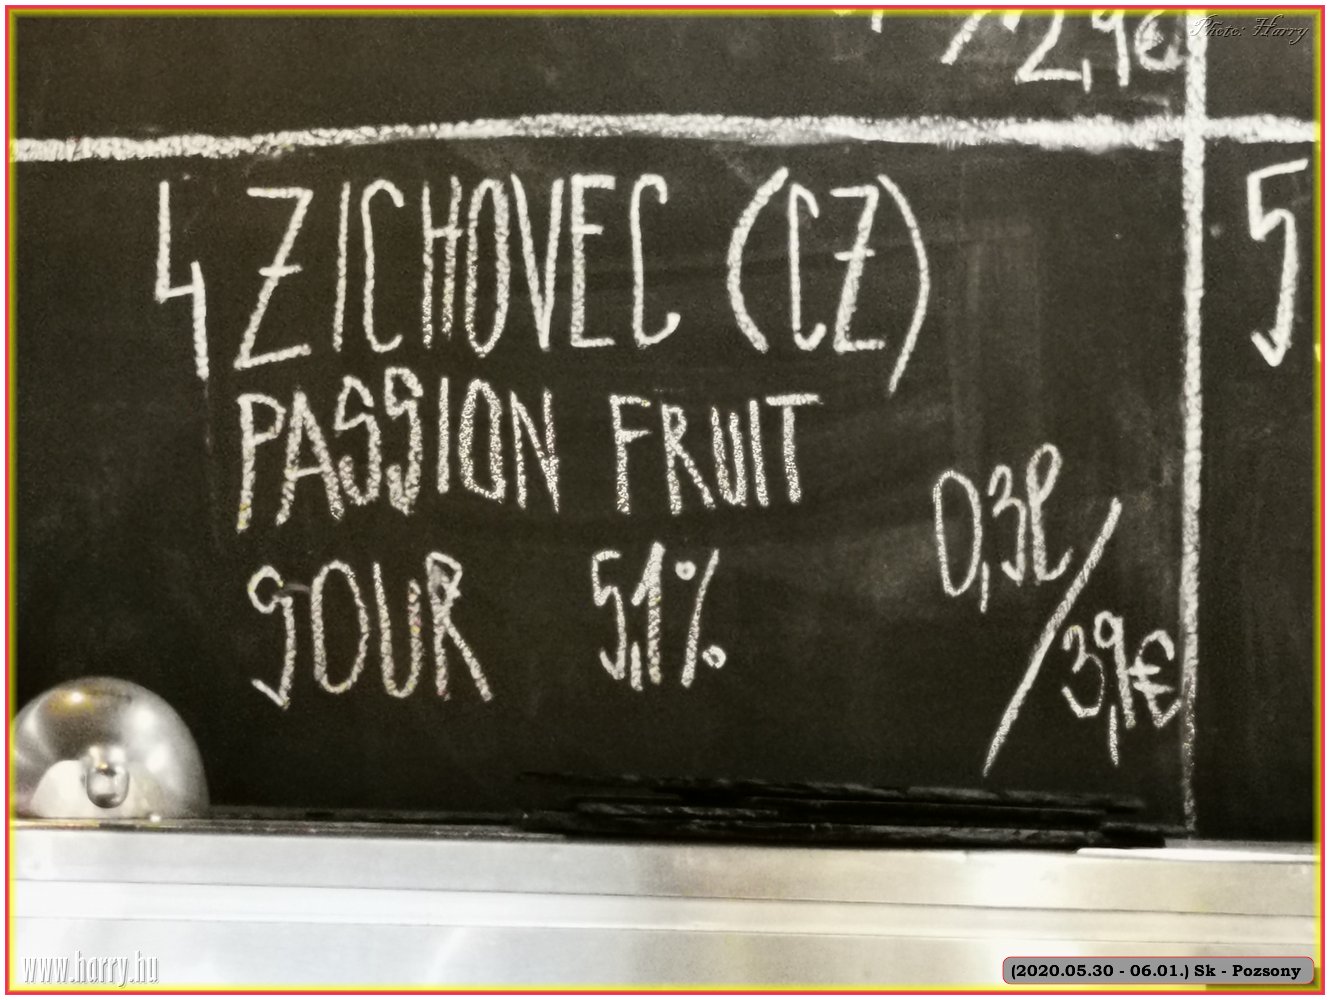 2,9€
Photo: Harry
4 ZICHOVEC (CZ)
5
PASSION FRUIT
0,3l/3,9€
SOUR 5,1%
www.harry.hu
(2020.05.30 - 06.01.) Sk - Pozsony